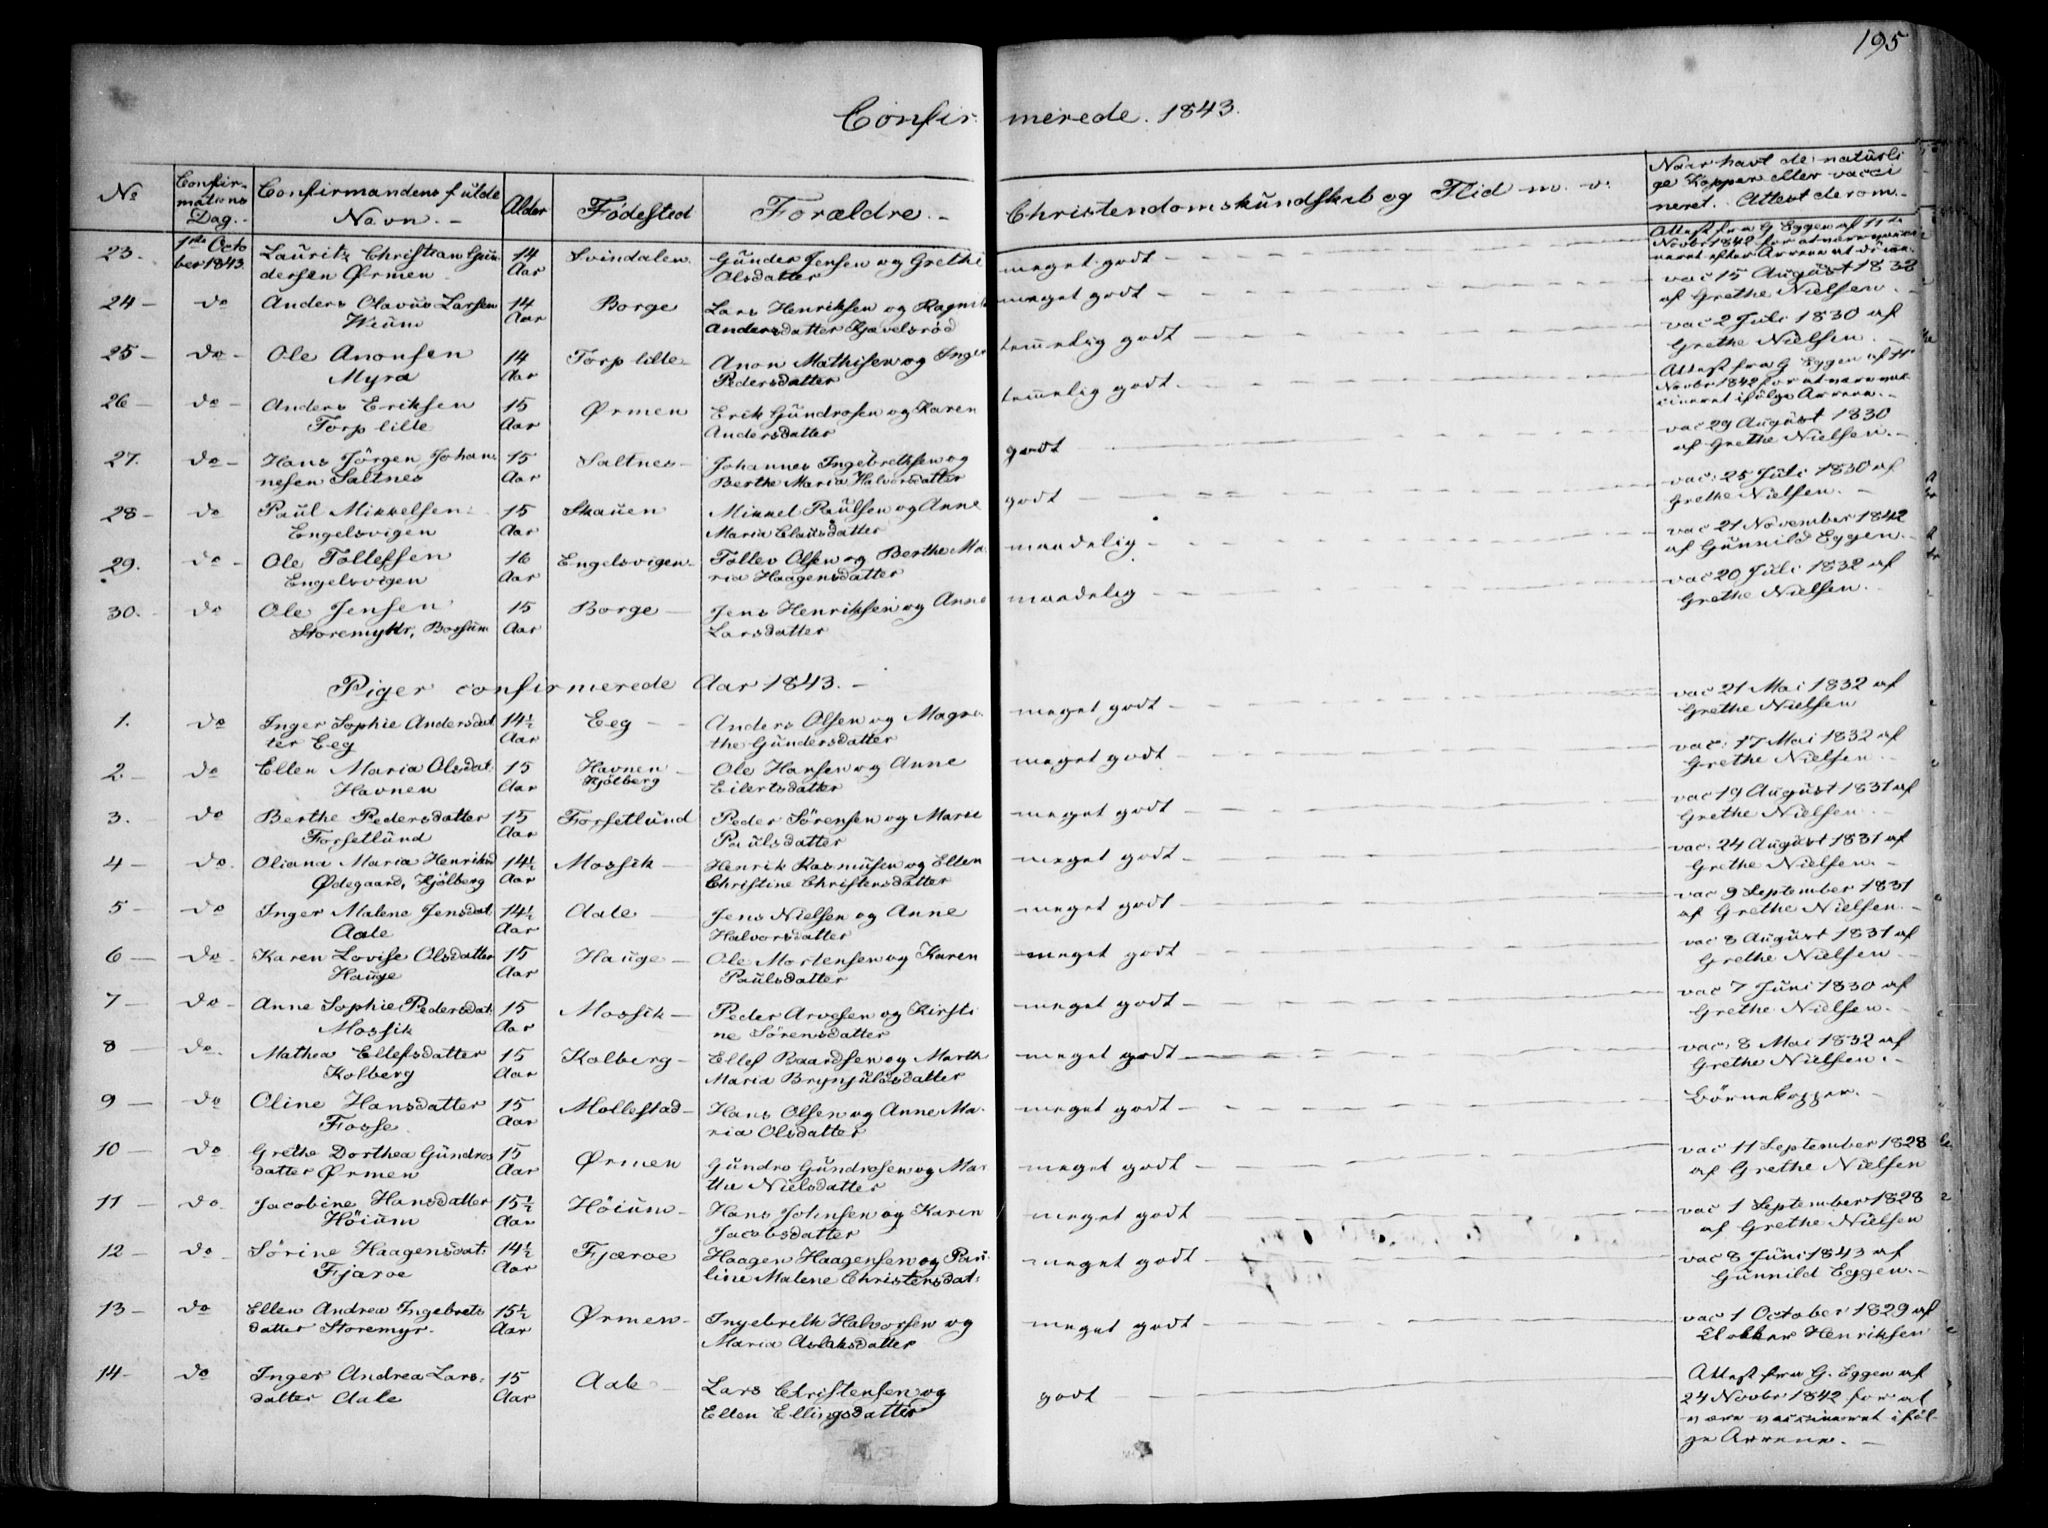 195
Confirmerede. 1843.
No
Confirmations Dag.
Confirmandens fulde Navn.
Alder
Födested
Forældre.
Christendomskundskab og Flid m. v.
Naar havt de naturlige Kopper eller vaccineret. Attest derom
23. 1ste October 1843. Lauritz Christian Gündersen Ørmen 14 Aar Svindalen Günder Jensen og Grethe Olsdatter meget godt Attest fra G Eggen af 11te Novbr 1842 for at være vaccineret efter Arrene at dömme
24 do Anders Olavus Larsen Wium 14 Aar Borge Lars Henriksen og Ragnil Andersdatter Kjævelsröd meget godt vac 15 Augüst 1832 af Grethe Nielsen.
25 do Ole Anonsen Myra 14 Aar Torp lille Anon Mathisen og Inger Pedersdatter temelig godt vac 2 Juli 1830 af Grethe Nielsen
26 do Anders Eriksen Torp lille 15 Aar Ørmen Erik Gündrosen og Karen Andersdatter temelig godt. Attest fra G Eggen af 11te Novbr 1842 for at være vaccineret ifölge Arrene.
27. do Hans Jörgen Johannesen Saltnes 15 Aar Saltnes Johannes Ingebrethsen og Berthe Maria Halvorsdatter godt vac 29 Augüst 1830 af Grethe Nielsen.
28 do Paul Mikkelsen Engelsvigen 15 Aar Skauen Mikkel Paülsen og Anne Maria Claüsdatter godt vac: 25 Juli 1830 af Grethe Nielsen.
29. do Ole Tolleffsen Engelsvigen 16 Aar Engelsvigen Tollev Olsen og Berthe Maria Haagensdatter maadelig vac 21 November 1842 af Günnild Eggen.
30. do Ole Jensen Storemyhr, Borsüm 15 Aar Borge Jens Henriksen og Anne Larsdatter maadelig vac 20 Juli 1832 af Grethe Nielsen.
Piger confirmerede Aar 1843.
1. do Inger Sophie Andersdatter Eeg 14½ Aar Eeg Anders Olsen og Magrethe Gündersdatter meget godt vac 21 Mai 1832 af Grethe Nielsen
2. do Ellen Maria Olsdat: Havnen 15 Aar Havnen Kjölberg Ole Hansen og Anne Eilertsdatter meget godt vac: 17 Mai 1832 af Grethe Nielsen
3. do Berthe Pedersdatter Forsetlünd 15 Aar Forsetlünd Peder Sörensen og Marie Paulsdatter meget godt vac 19 Augüst 1831 af Grethe Nielsen
4 do. Oliana Maria Henriksd Ødegaard, Kjölberg 14½ Aar Mossik Henrik Rasmüsen og Ellen Christine Christensdatter meget godt vac: 24 Augüst 1831 af Grethe Nielsen.
5 do Inger Malene Jensdat. Aale 14½ Aar Aale Jens Nielsen og Anne Halvorsdatter meget godt vac 9 September 1831 af Grethe Nielsen.
6 do Karen Lovise Olsdatter Haüge 15 Aar Haüge Ole Mortensen og Karen Paulsdatter meget godt vac 8 Augüst 1831 af Grethe Nielsen
7 do Anne Sophie Pedersdat. Mossik 15 Aar Mossik Peder Arvesen og Kirstine Sörensdatter meget godt vac 7 Jüni 1830 af Grethe Nielsen.
8 do. Mathea Ellefsdatter Kolberg 15 Aar Kolberg Ellef Baardsen og Marthe Maria Brynjulvsdatter meget godt vac: 8 Mai 1832 af Grethe Nielsen.
9 do Oline Hansdatter Fosse. 15 Aar Mollestad Hans Olsen og Anne Maria Olsdatter meget godt Börnekopper.
10 do Grethe Dorthea Gündrosdatter Ørmen 15 Aar Ørmen Gündro Gündrosen og Marthe Nielsdatter meget godt vac 11 September 1828 af Grethe Nielsen
11 do. Jacobine Hansdatter Höium 15½ Aar Höium Hans Johnsen og Karen Jacobsdatter meget godt vac 1 September 1828 af Grethe Nielsen
12 do Sörine Haagensdat: Fjæroe 14½ Aar Fjæroe Haagen Haagensen og Pauline Malene Christensdat: meget godt vac 8 Jüni 1843 af Günnild Eggen.
13 do Ellen Andrea Ingebretsdatter Storemyr. 15½ Aar Ørmen Ingebreth Halvorsen og Maria Aslaksdatter meget godt vac 1 October 1829 af Klokker Henriksen
14 do Inger Andrea Larsdatter Aale 15 Aar Aale Lars Christensen og Ellen Ellingsdatter godt Attest fra G. Eggen af 24 Novbr 1842 for at være vaccineret ifölge Arrene.